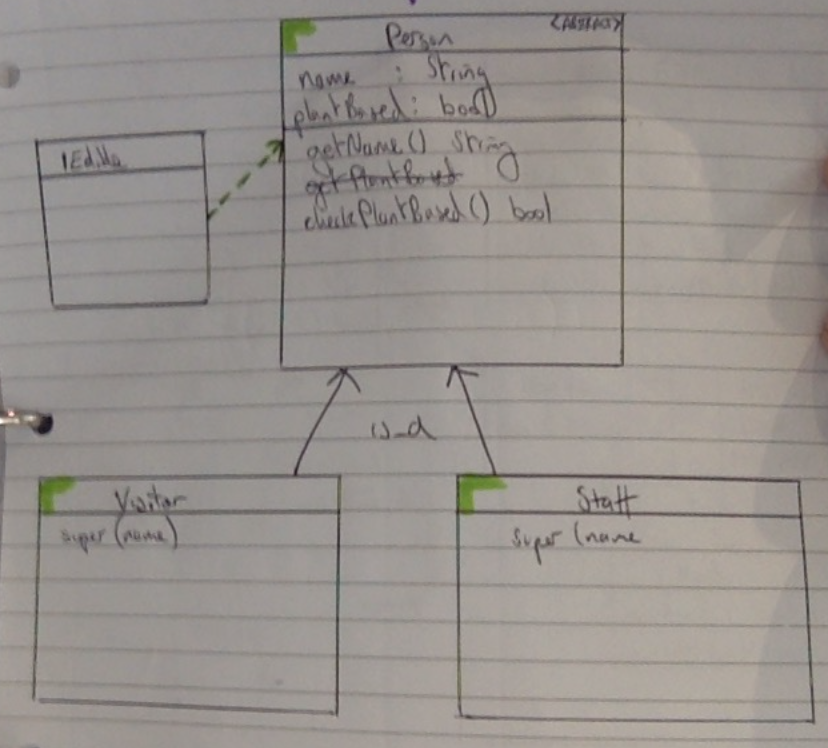 Person <ABSTRACT>
name : String
plantBased : bool
getName() String
getPlantBased
checkPlantBased() bool
is_a
Visitor
super (name)
Staff
super (name